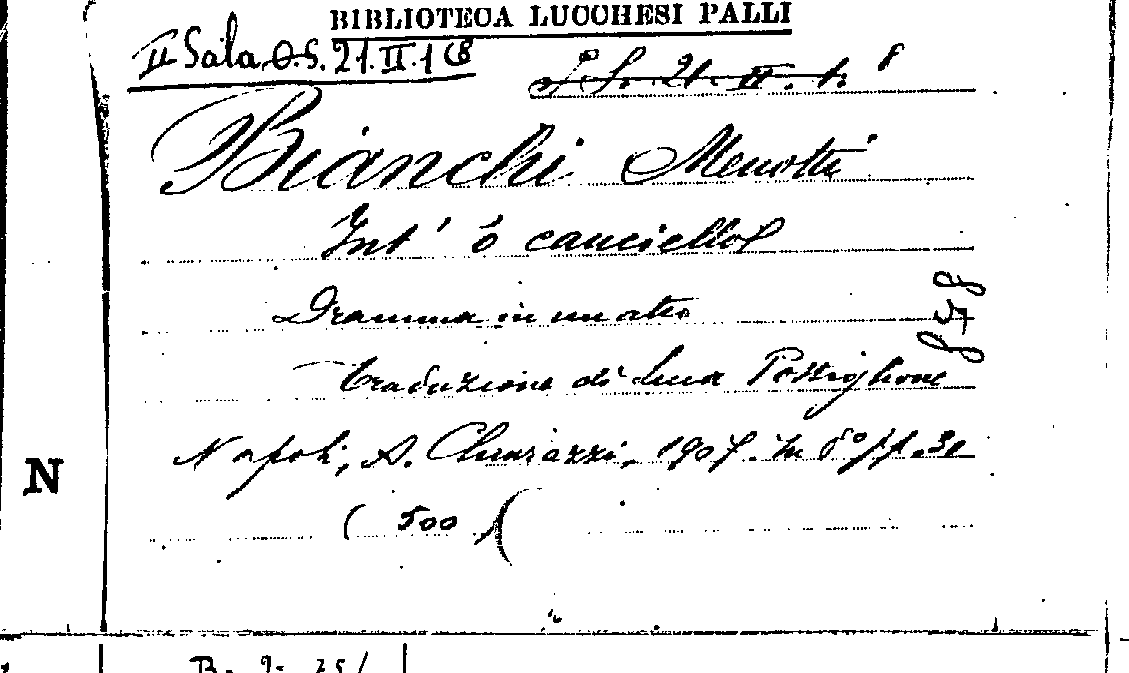 BIBLIOTECA LUCCHESI PALLI
II Sala O.S. 21.II.1 (8
S. S. 21. II. 1. 8
Bianchi Menotti
Int' 'o canciello
Dramma in un atto
traduzione di Luca Postiglione
Napoli, A. Chiurazzi, 1907. In 8° pp. 30
( 500 )
N